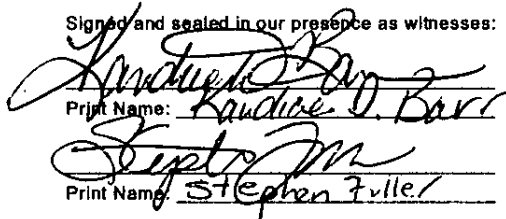 Signed and sealed in our presence as witnesses:
Kandice D. Barr
Print Name: Kandice D. Barr
Stephen Fuller
Print Name: Stephen Fuller